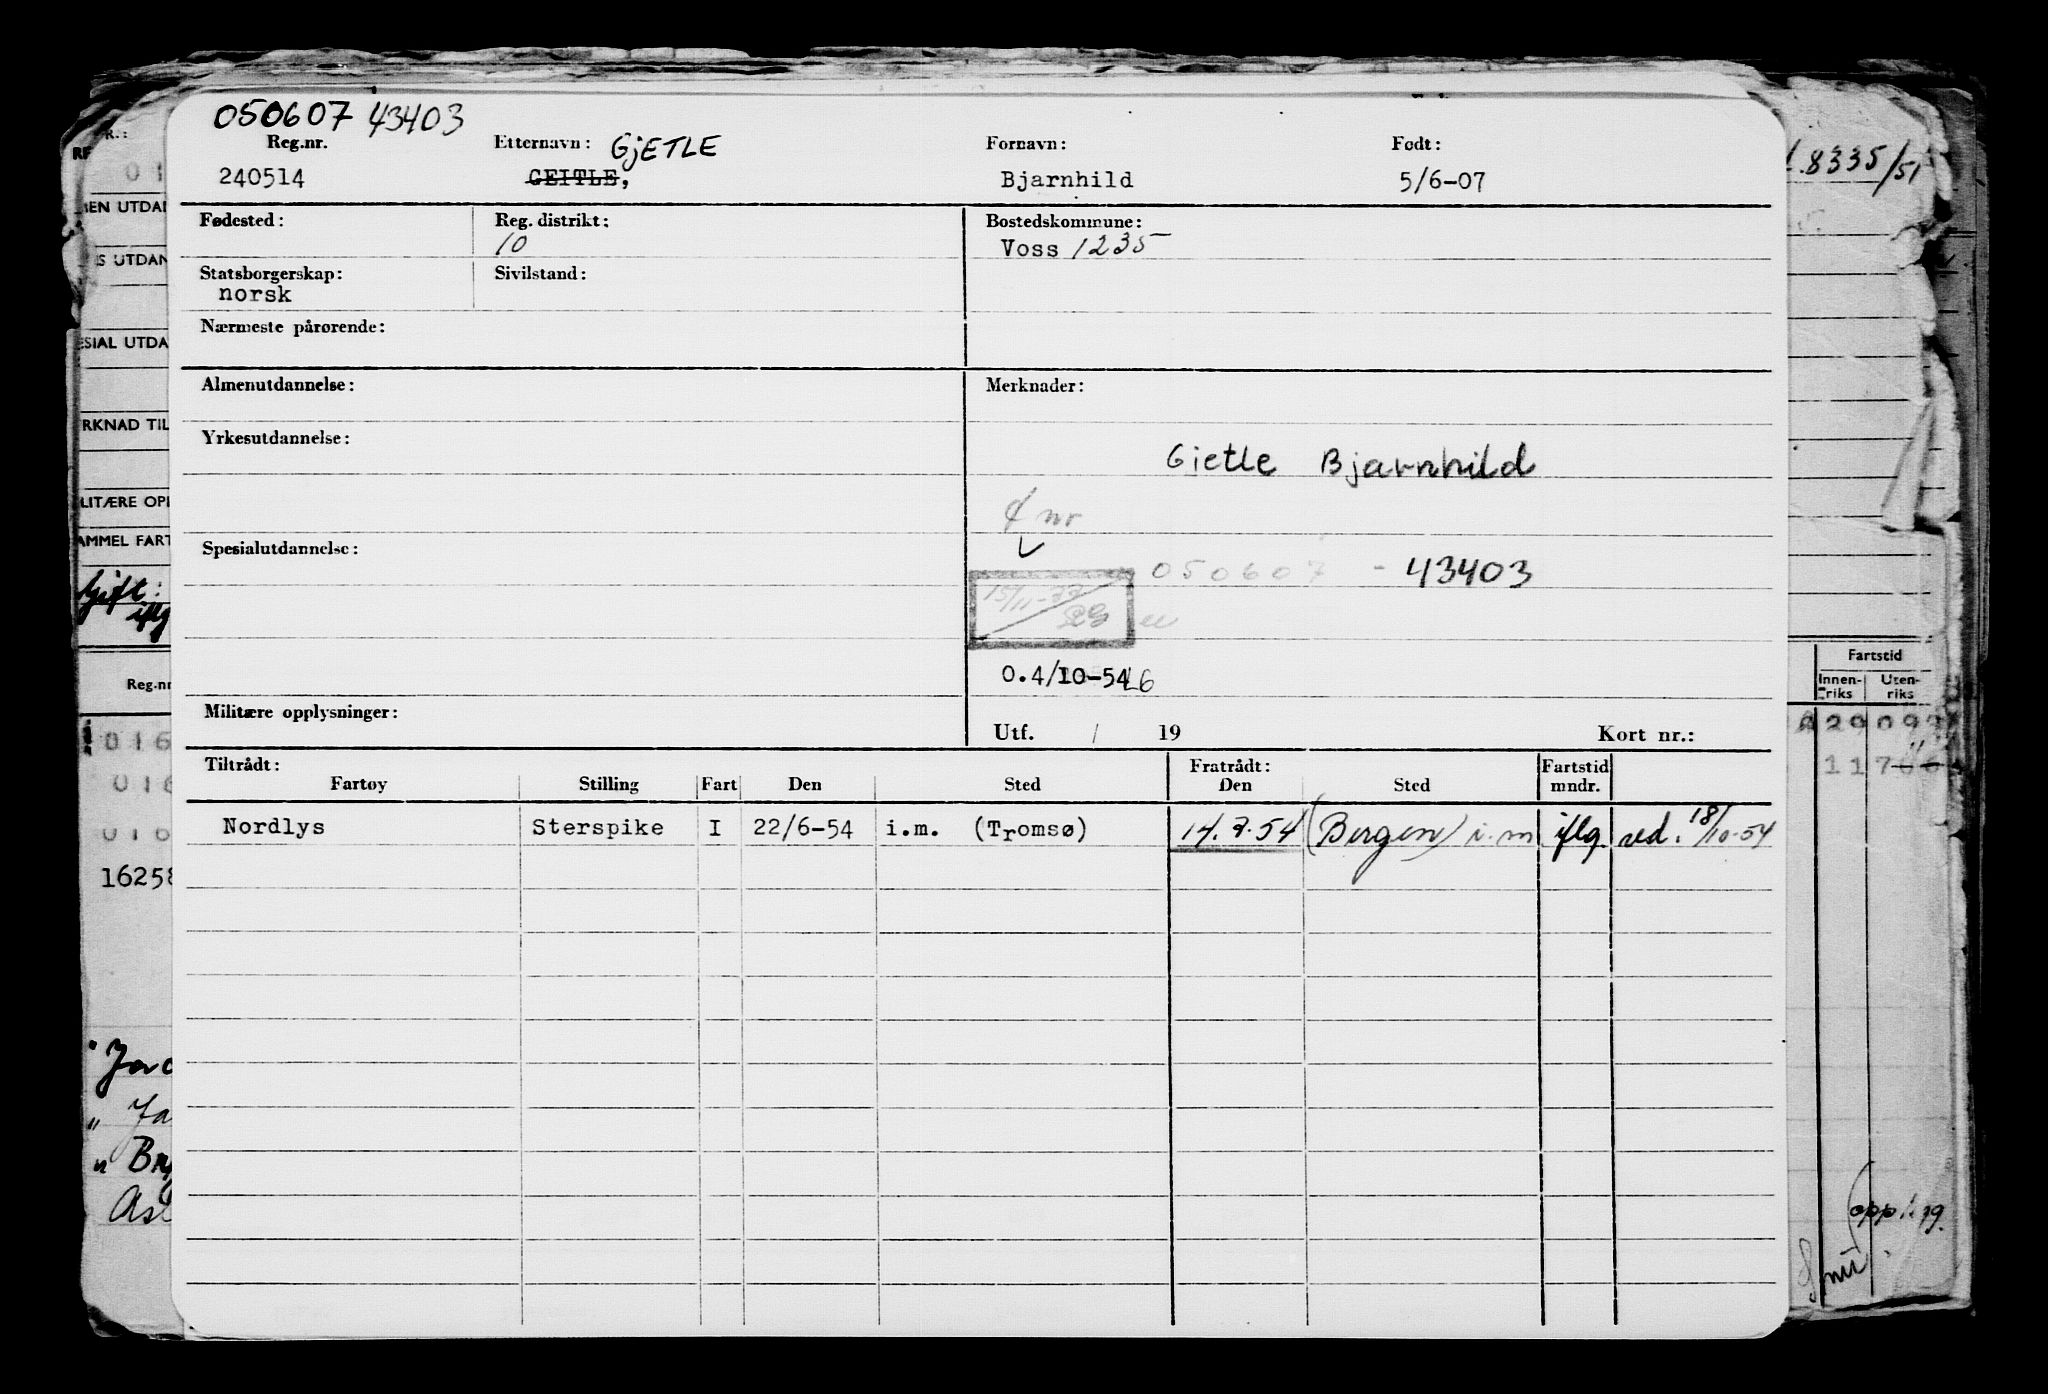 050607 43403
Reg.nr. Etternavn: GjETLE Fornavn: Født:
240514 GEITLE, Bjarnhild 5/6-07
Fødested: Reg. distrikt: Bostedskommune:
10 Voss 1235
Statsborgerskap: Sivilstand:
norsk
Nærmeste pårørende:
Almenutdannelse: Merknader:
Yrkesutdannelse:
Gjetle Bjarnhild
nr
Spesialutdannelse:
050607 - 43403
15/11-77
0.4/10-54 LG
Militære opplysninger:
Utf. / 19 Kort nr.:
Tiltrådt: Fratrådt: Fartstid
Fartøy Stilling Fart Den Sted Den Sted mndr.
Nordlys Sterspike I 22/6-54 i.m. (Tromsø) 14.7.54 (Bergen) i.m iflg. ved. 18/10-54
R.:
01
MEN UTDAN
IS UTDAN
ESIAL UTDA
RKNAD TIL
LITÆRE OPP
AMMEL FART
Gift:
iflg
Reg.nr
016
016
016
16258
" Ja
" Br
Ast
8335/51
Fartstid
Innen-riks Uten-riks
117